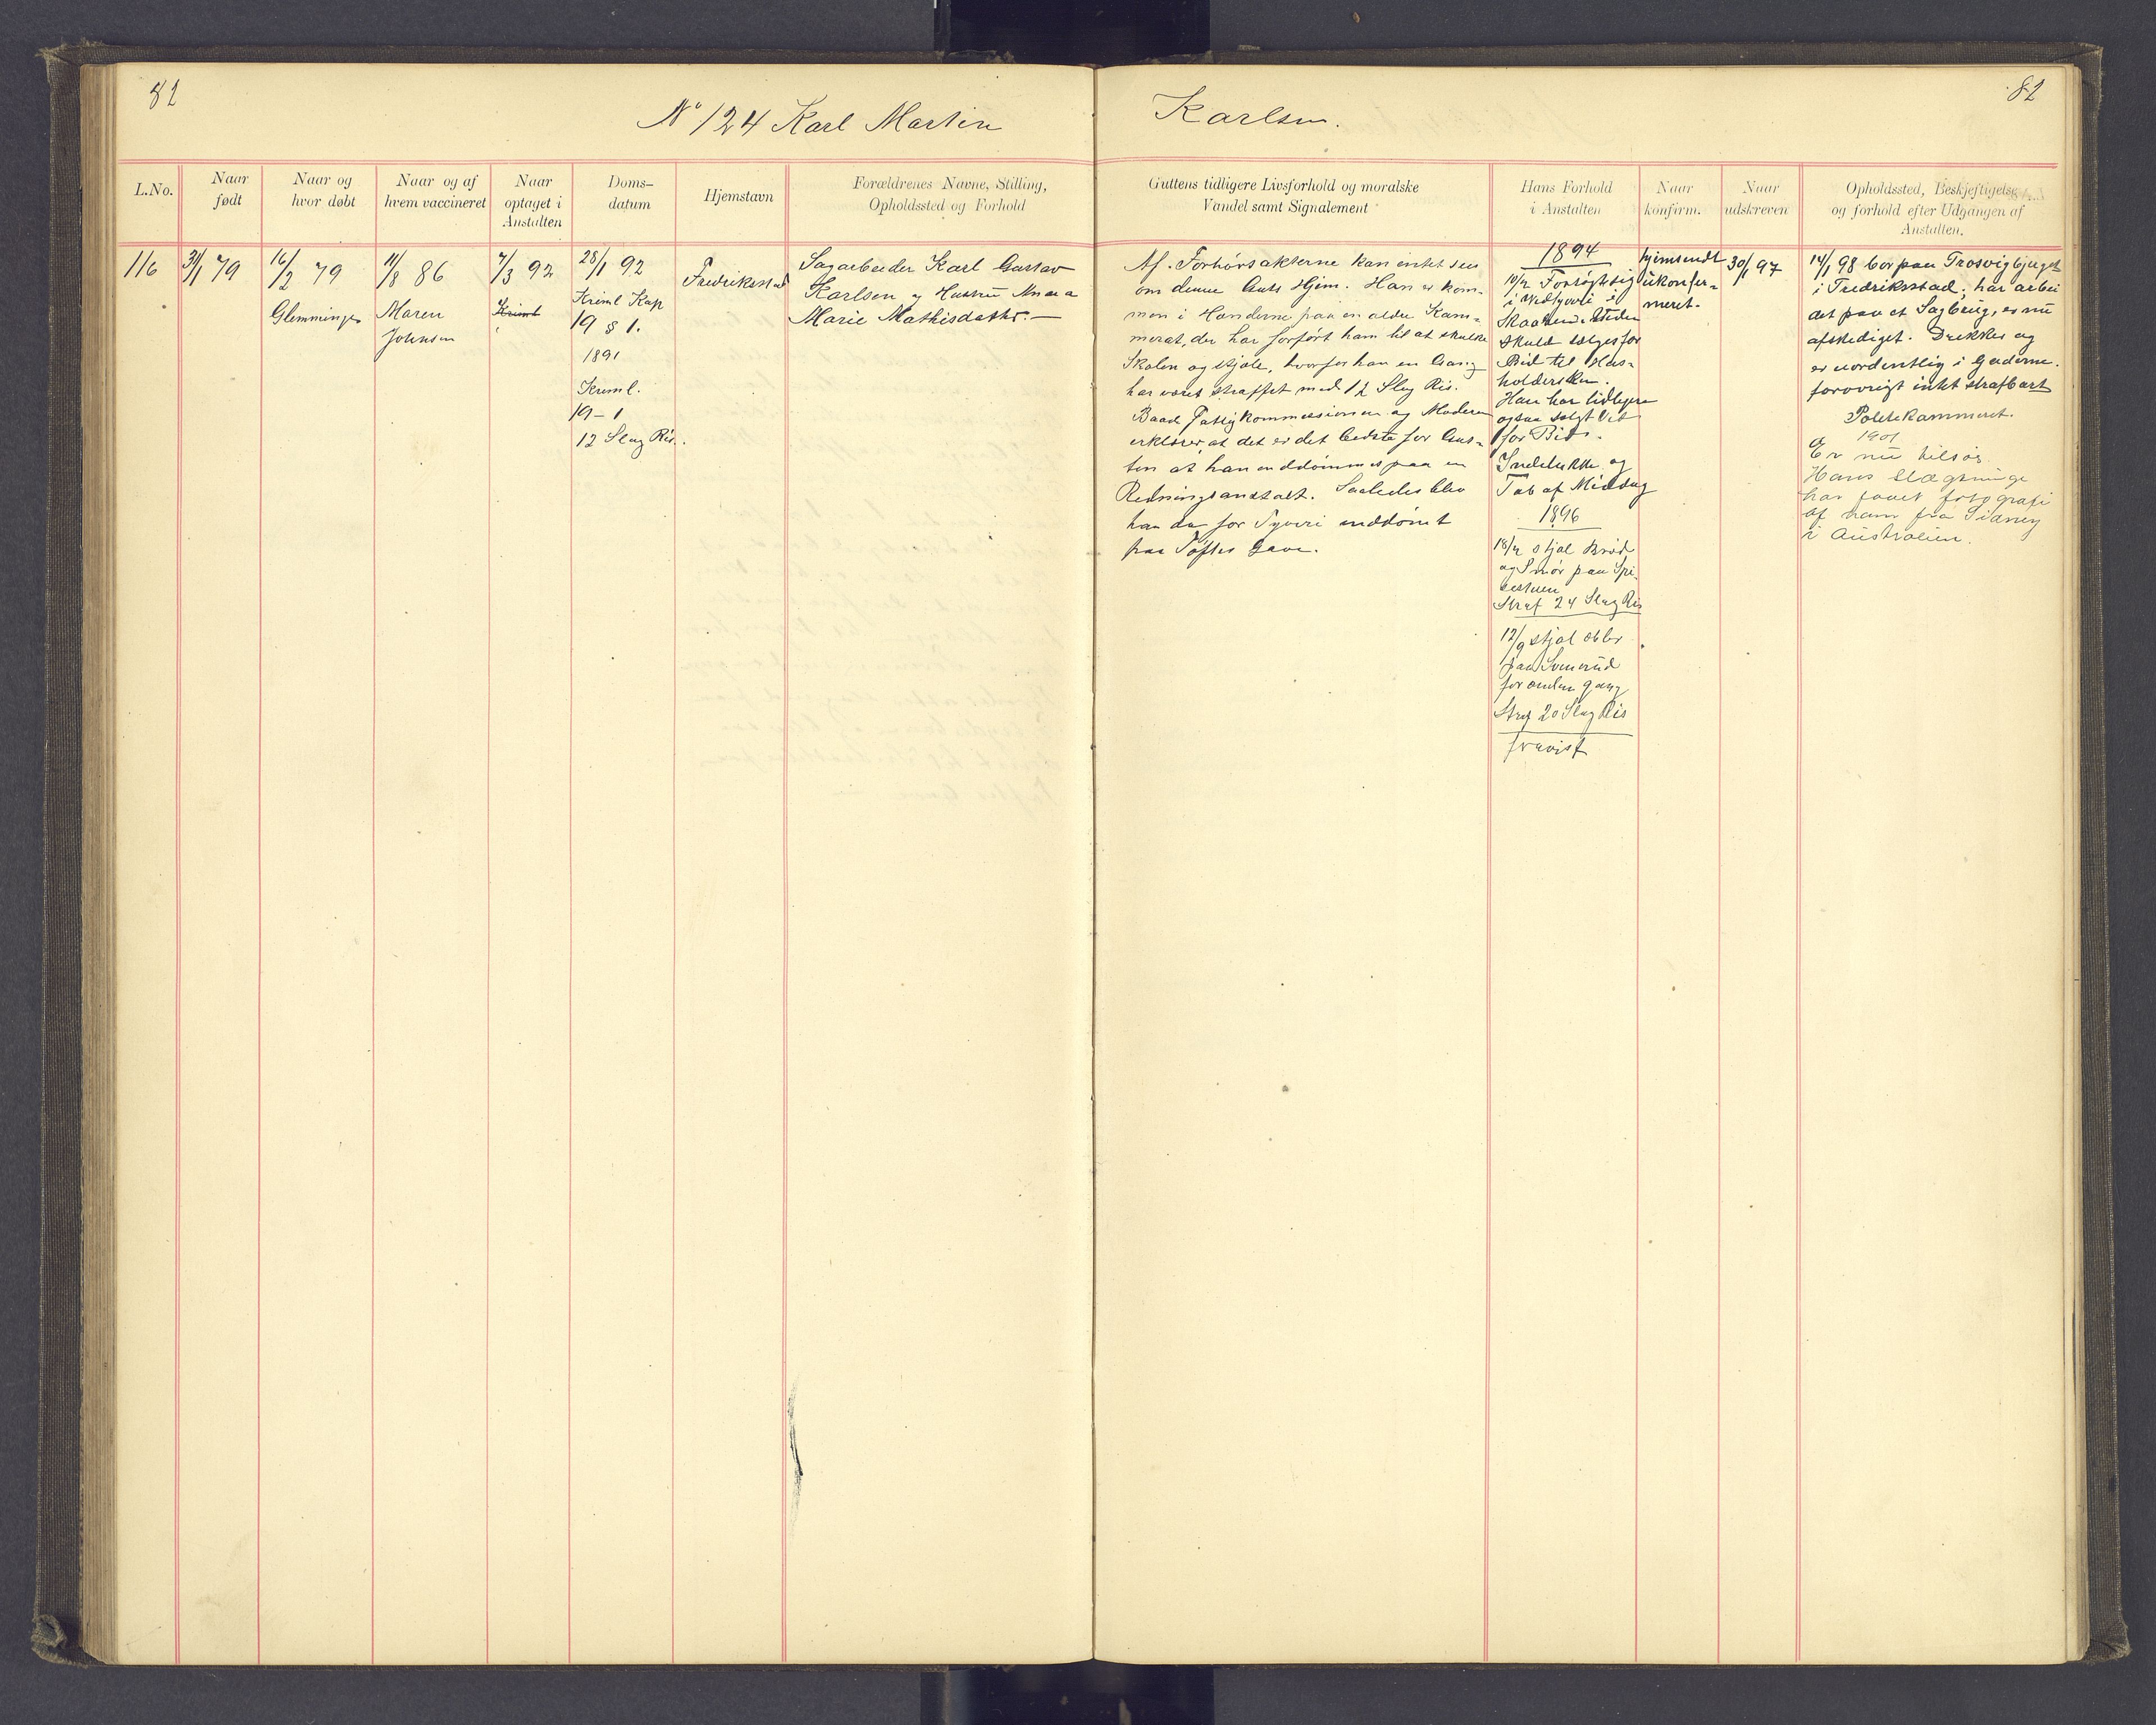 82
82
No 124 Karl Martin Karlsen.
L.No.
Naar
født
Naar og
hvor døbt
Naar og af
hvem vaccineret
Naar
optaget i
Anstalten
Doms-
datum
Hjemstavn
Forældrenes Navne, Stilling,
Opholdssted og Forhold
Guttens tidligere Livsforhold og moralske
Vandel samt Signalement
Hans Forhold
i Anstalten
Naar
konfirm.
Naar
udskreven
Opholdssted, Beskjeftigelse
og forhold efter Udgangen af
Anstalten.
116
31/1 79
16/2 79
Glemminge
11/8 86
Maren
Johnsen
7/3 92
Kriml
28/1 92
Kriml Kap
19 § 1.
1891
Kriml.
19-1
12 Slag Ris.
Fredriksstad
Sagarbeider Karl Gustav
Karlsen og Hustru Anna
Marie Mathisdattr.-
Af Forhørsakterne kan intet sees
om denne Guts Hjem. Han er kom-
men i Hænderne paa en ældre Kam-
merat, der har forført ham til at skulke
Skolen og stjæle, hvorfor han en Gang
har været straffet med 12 Slag Ris.
Baade Fattigkommissionen og Moderen
erklærer, at det er det bedste for Gut-
ten at han inddømmes paa en
Redningsanstalt. Saaledes blev
han da for Tyveri inddømt
paa Toftes Gave.
1894
Forsøgte sig
i Vedtyveri i
Skoven. Veden
skulde sælges for
Bid til Hus-
holdersken.
Han har tidligere
ogsaa solgt Ved
for Bid.
Indelukke og
Tab af Middag
1896
18/2 stjal Brød
og Smør paa Spi-
sestuen
Straf 24 Slag Ris
12/9 stjal æbler
paa Svenerud
for anden gang
Straf 20 Slag Ris
fravist
hjemsendt
ukonfir-
meret.
30/1 97
14/1 98 bor paa Trosvigbjerget
i Fredriksstad; har arbei
det paa et Sagbrug, er nu
afskediget. Drikker og
er uordentlig i Gaderne.
forøvrigt intet strafbart
Politikammeret.
1901
Er nu tilsøs.
Hans slægtninge
har faaet fotografi
af ham fra Sidney
i Australien.